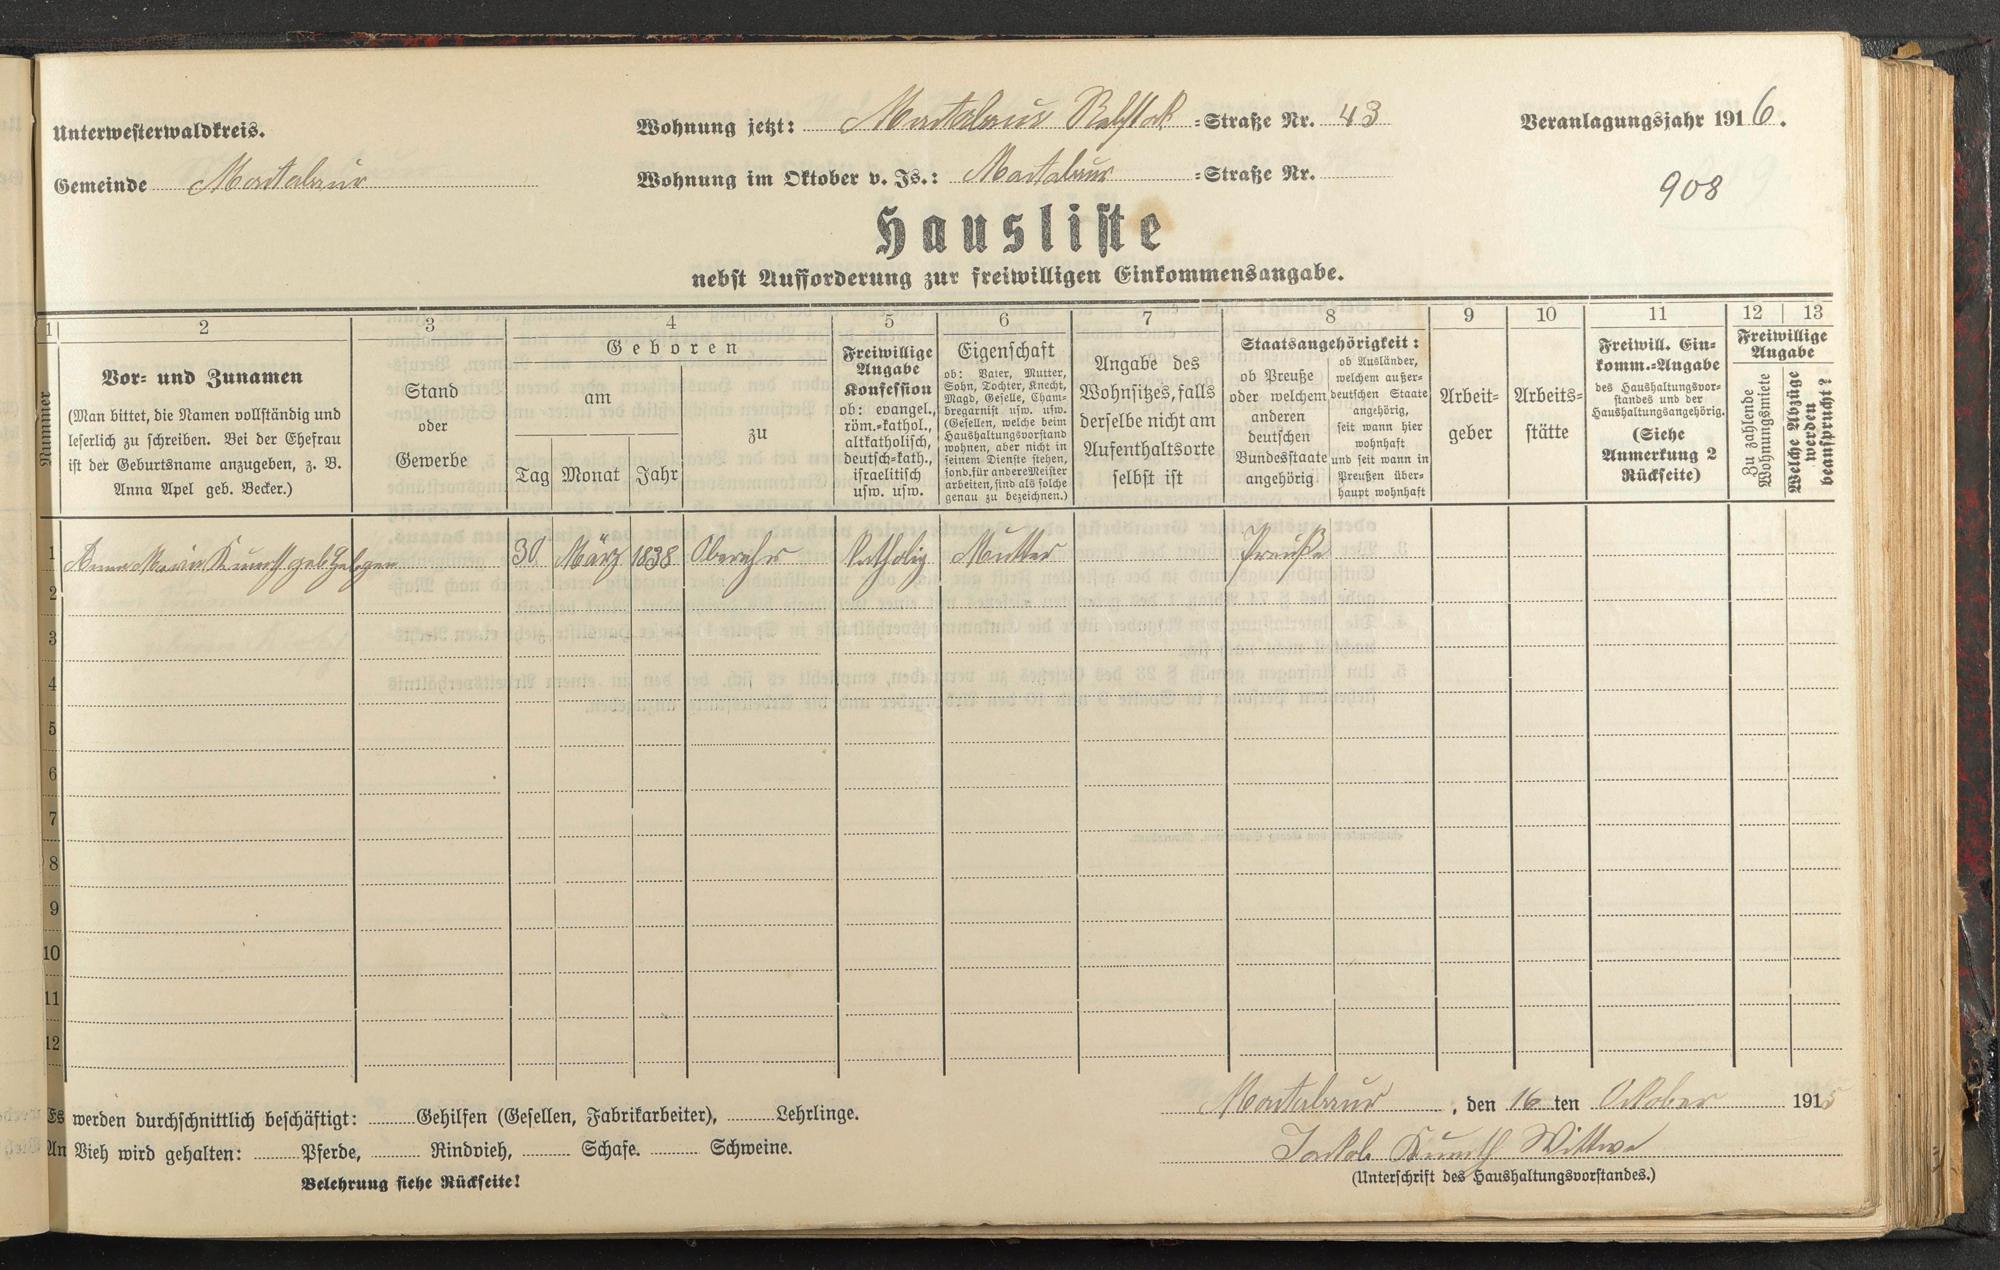 Unterwesterwaldkreis.
Gemeinde Montabaur
Wohnung jetzt: Montabaur Rebstock =Straße Nr. 43
Wohnung im Oktober v. Js.: Montabaur =Straße Nr.
Veranlagungsjahr 1916.
908
Hausliste
nebst Aufforderung zur freiwilligen Einkommensangabe.
1 2 3 4 5 6 7 8 9 10 11 12 13
Nummer
Vor= und Zunamen
(Man bittet, die Namen vollständig und
leserlich zu schreiben. Bei der Ehefrau
ist der Geburtsname anzugeben, z. B.
Anna Apel geb. Becker.)
Stand
oder
Gewerbe
Geboren
am
Tag Monat Jahr
zu
Freiwillige
Angabe
Konfession
ob: evangel.,
röm.=kathol.,
altkatholisch,
deutsch=kath.,
israelitisch
usw. usw.
Eigenschaft
ob: Vater, Mutter,
Sohn, Tochter, Knecht,
Magd, Geselle, Cham=
bregarnist usw. usw.
(Gesellen, welche beim
Haushaltungsvorstand
wohnen, aber nicht in
seinem Dienste stehen,
sond. für andere Meister
arbeiten, sind als solche
genau zu bezeichnen.)
Angabe des
Wohnsitzes, falls
derselbe nicht am
Aufenthaltsorte
selbst ist
Staatsangehörigkeit:
ob Preuße
oder welchem
anderen
deutschen
Bundesstaate
angehörig
ob Ausländer,
welchem außer=
deutschen Staate
angehörig,
seit wann hier
wohnhaft
und seit wann in
Preußen über=
haupt wohnhaft
Arbeit=
geber
Arbeits=
stätte
Freiwill. Ein=
komm.=Angabe
des Haushaltungsvor=
standes und der
Haushaltungsangehörig.
(Siehe
Anmerkung 2
Rückseite)
Freiwillige
Angabe
Zu zahlende
Wohnungsmiete
Welche Abzüge
werden
beansprucht?
1 Anna Maria Kunoth geb. 30 März 1838 Oberahr Katholig Mutter Preuße
2
3
4
5
6
7
8
9
10
11
12
Es werden durchschnittlich beschäftigt: Gehilfen (Gesellen, Fabrikarbeiter), Lehrlinge.
An Vieh wird gehalten: Pferde, Rindvieh, Schafe. Schweine.
Belehrung siehe Rückseite!
Montabaur, den 16 ten Oktober 1915
Jackob Kunoth Wittwe
(Unterschrift des Haushaltungsvorstandes.)